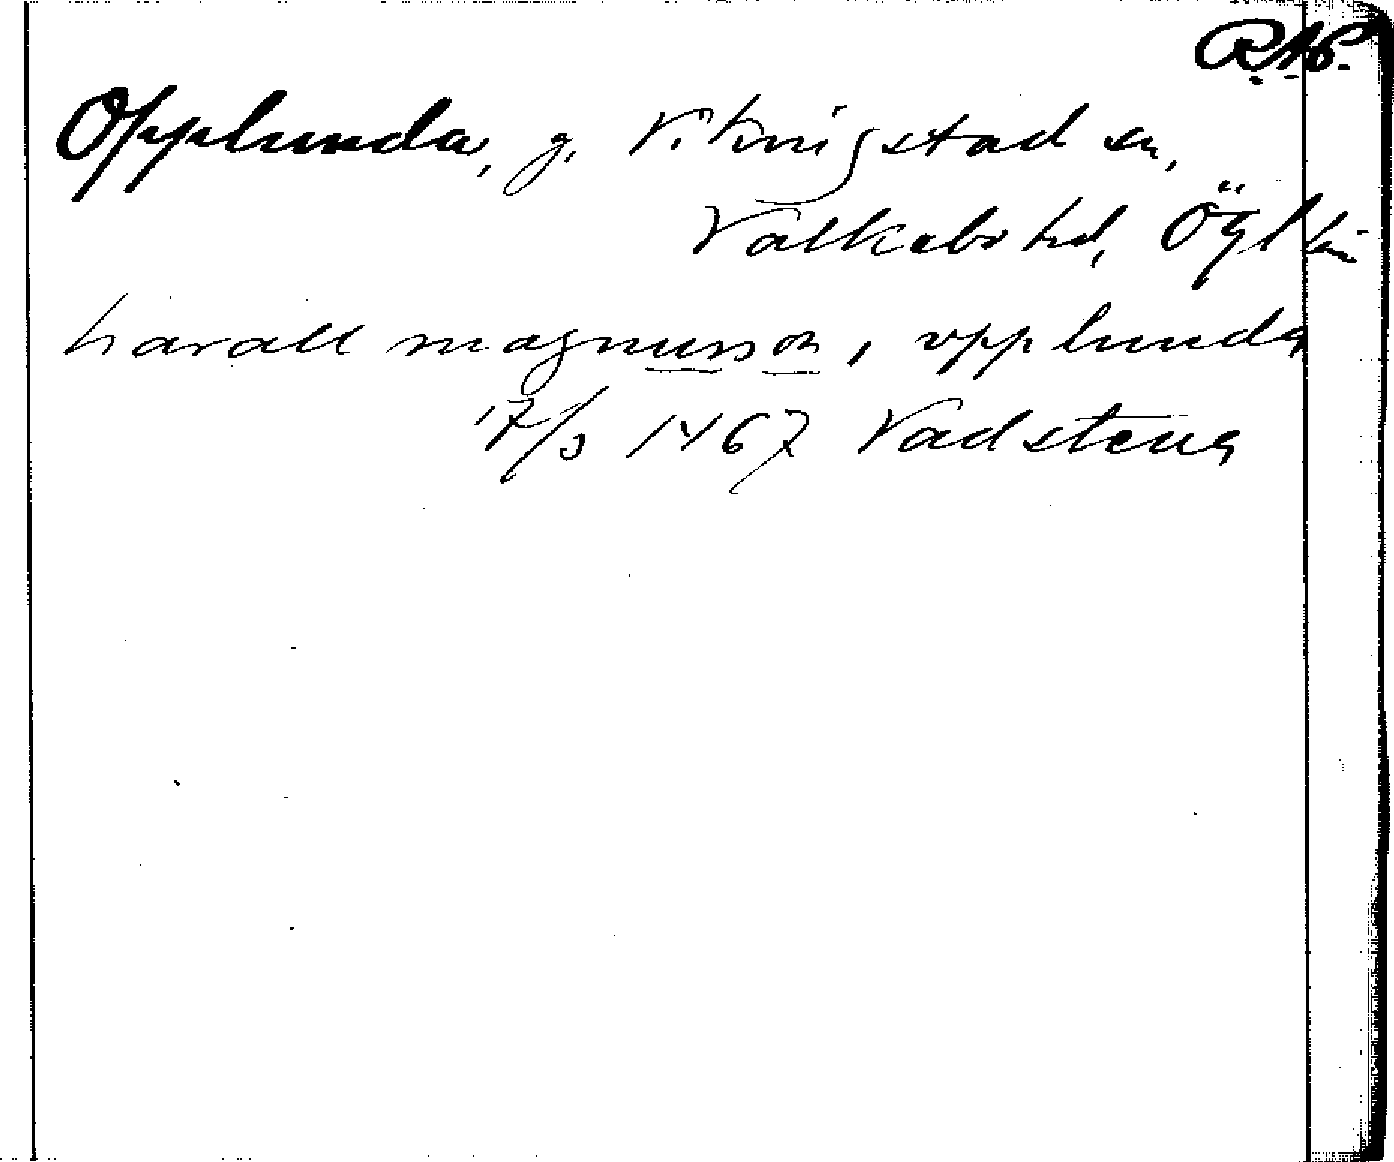 RAP.
Opplunda, g. Vikingstad sn,
Valkebo hd, Ögl län
harall magnusson, vpplunda
17/3 1467 Vadstena